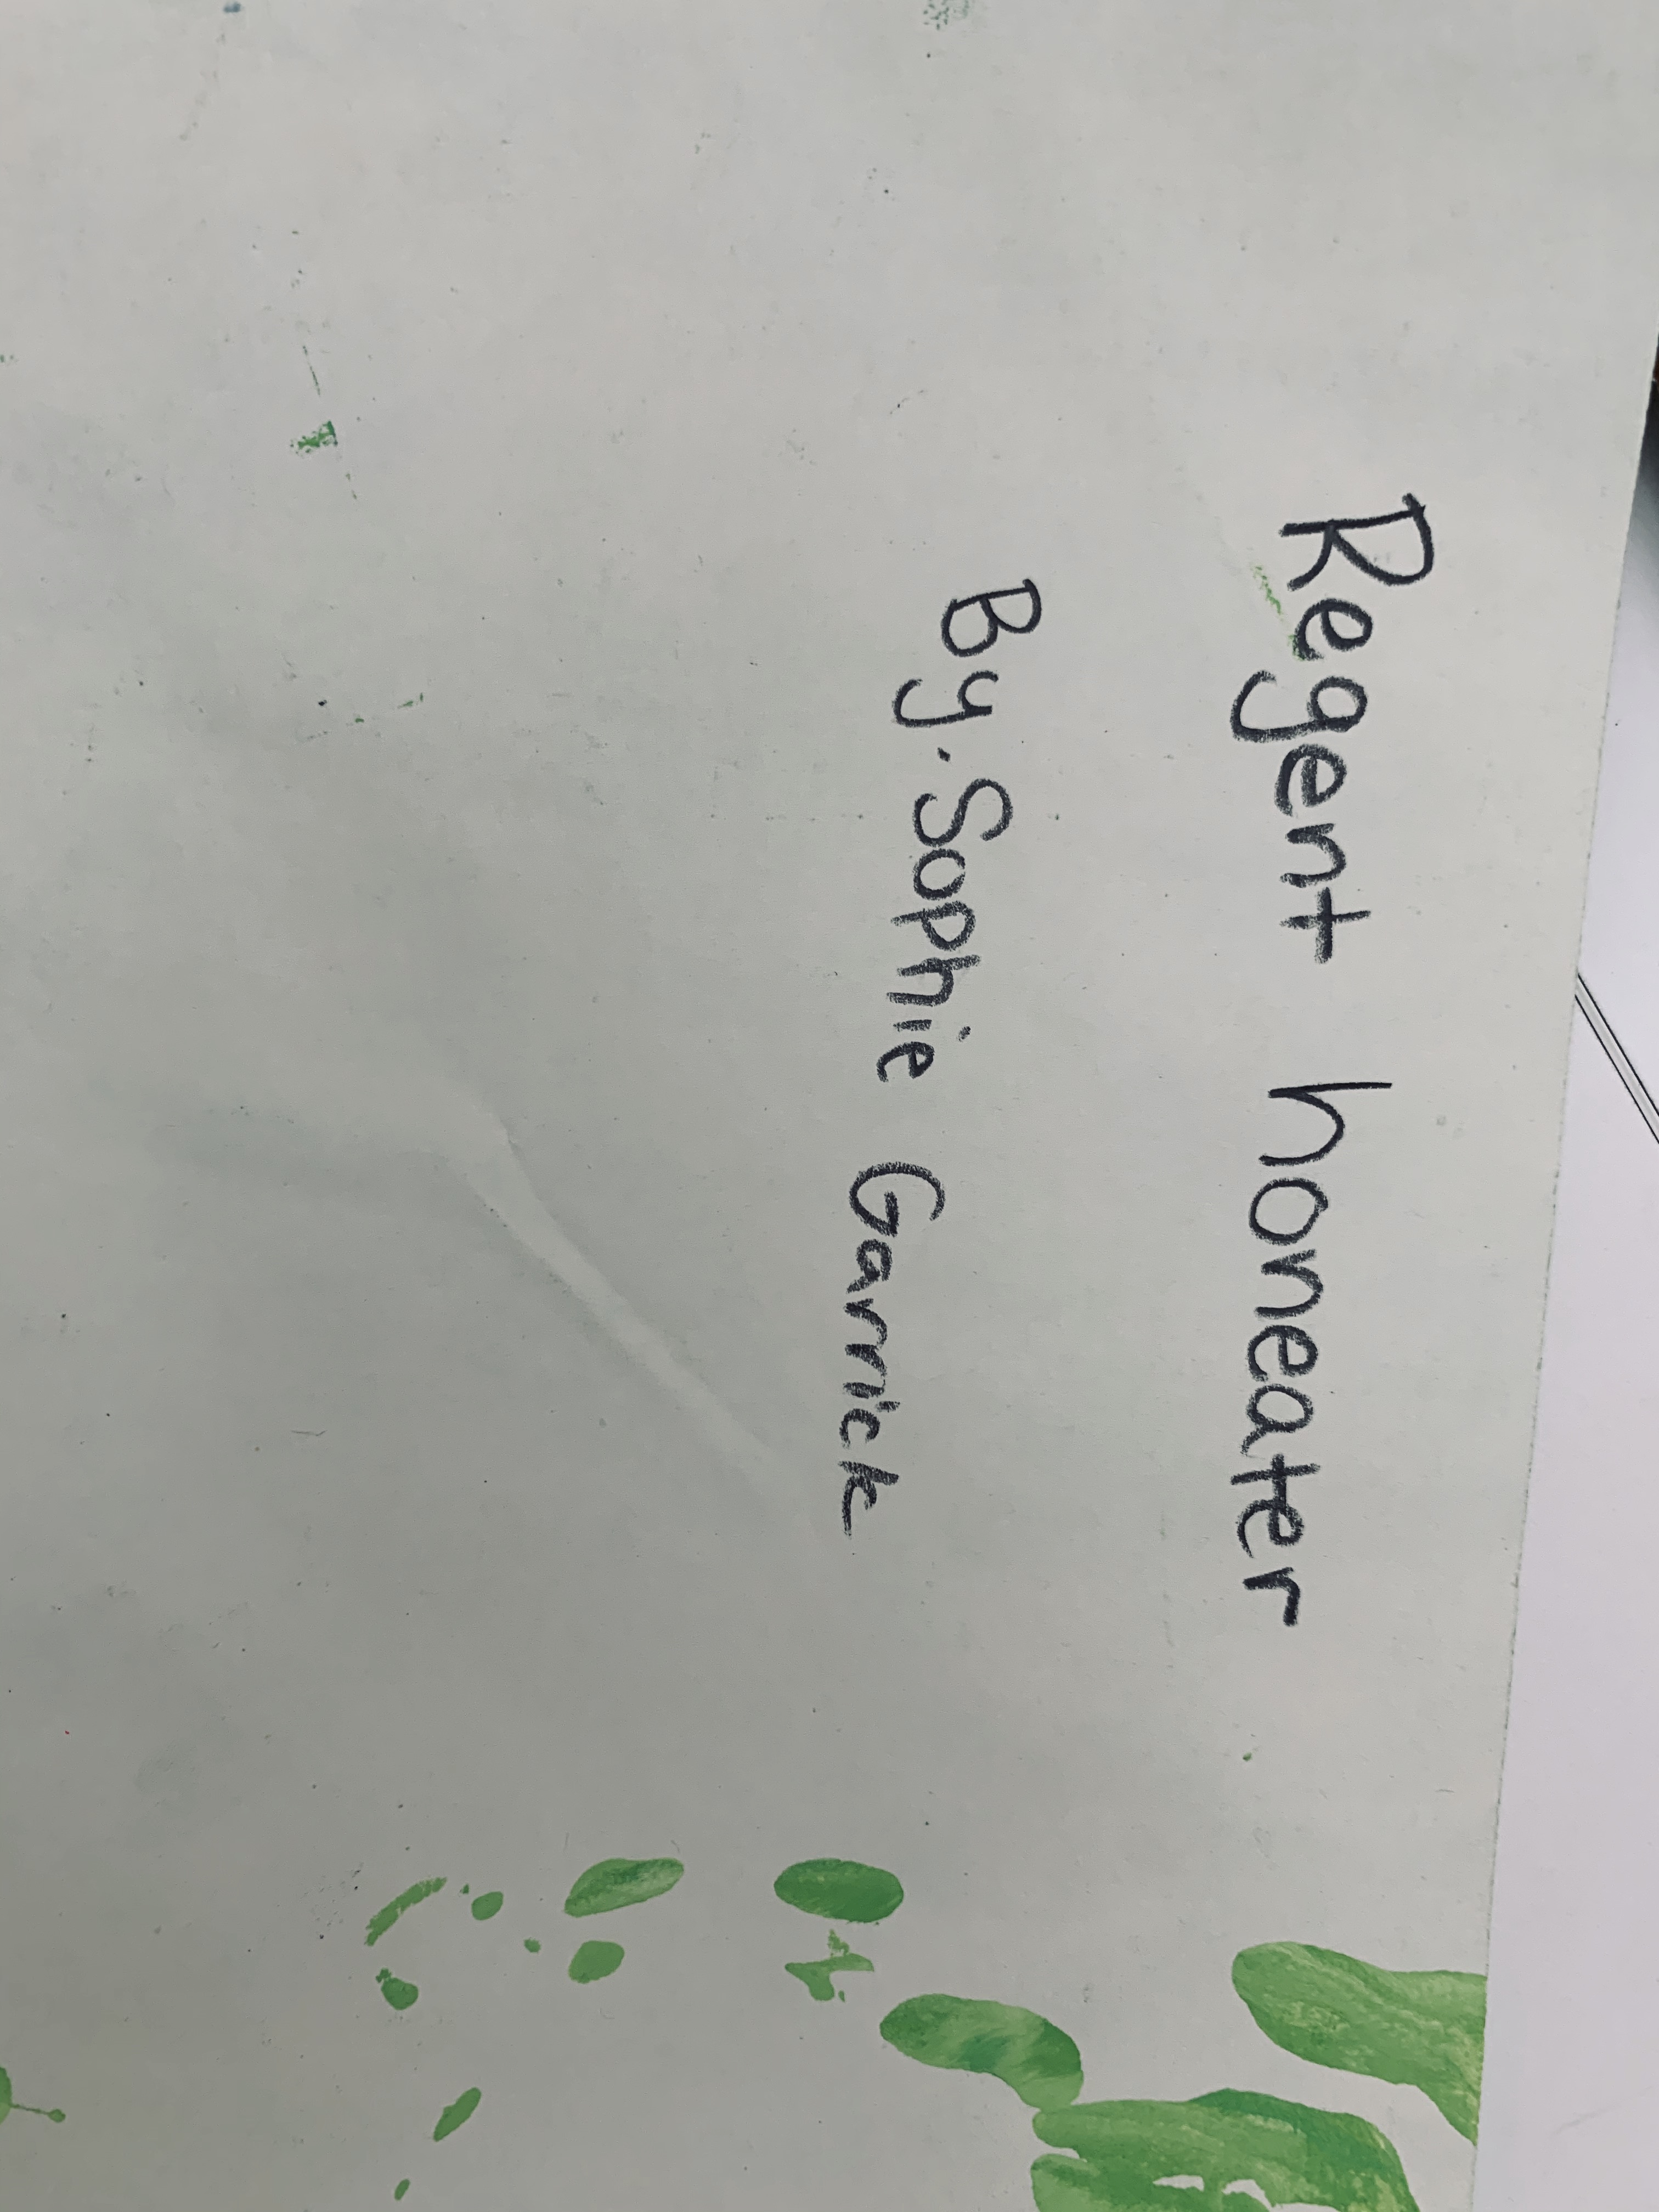 Regent honeater
By. Sophie Garrick